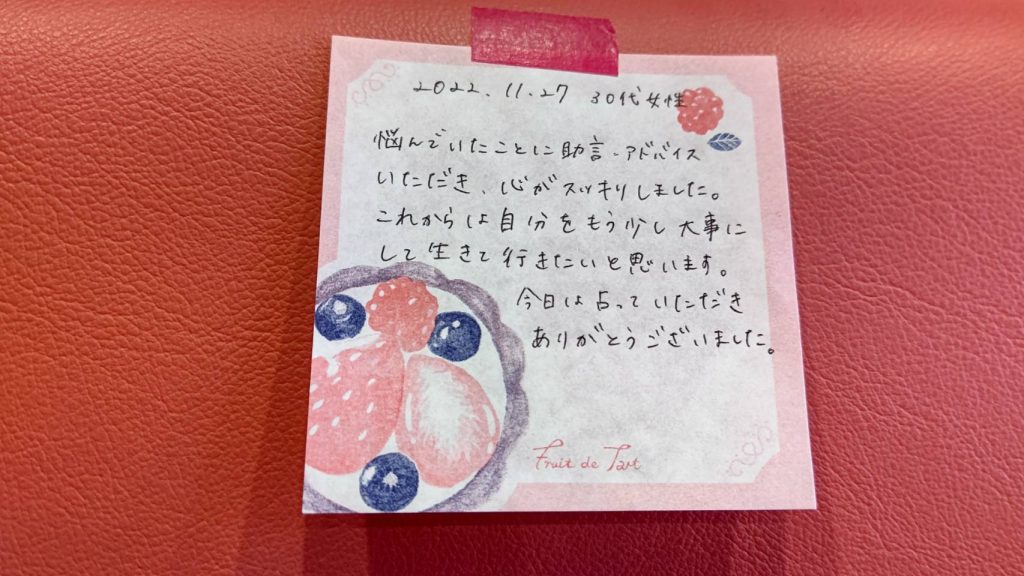 2022.11.27 30代女性
悩んでいたことに助言・アドバイス
いただき、心がスッキリしました。
これからは自分をもう少し大事に
して生きて行きたいと思います。
今日は占っていただき
ありがとうございました。
Fruit de Tart